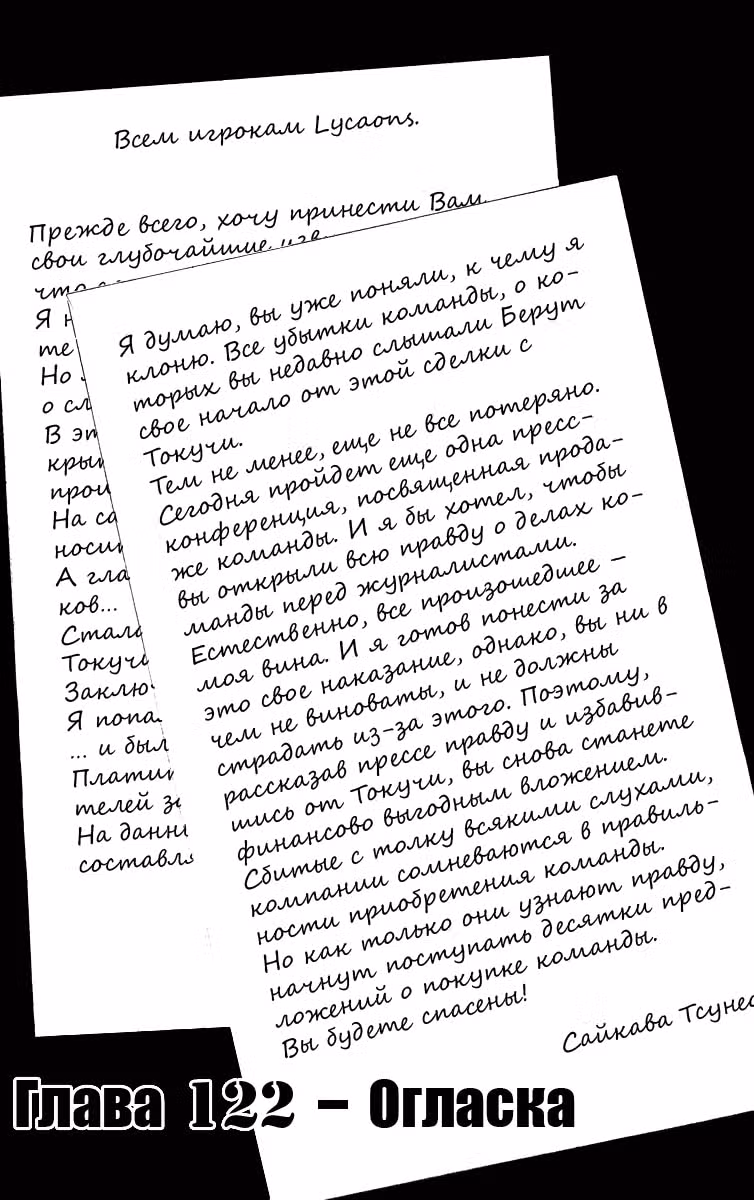 Всем игрокам Lycaons.
Прежде всего, хочу принести Вам
свои глубочайшие
что
Я
Но
о
В
На
А
ков...
Я
... и был
На
Я думаю, вы уже поняли, к чему я
клоню. Все убытки команды, о ко-
торых вы недавно слышали Берут
свое начало от этой сделки с
Токучи.
Тем не менее, еще не все потеряно.
Сегодня пройдет еще одна пресс-
конференция, посвященная прода-
же команды. И я бы хотел, чтобы
вы открыли всю правду о делах ко-
манды перед журналистами.
Естественно, все произошедшее -
моя вина. И я готов понести за
это свое наказание, однако, вы ни в
чем не виноваты, и не должны
страдать из-за этого. Поэтому,
рассказав прессе правду и избавив-
шись от Токучи, вы снова станете
финансово выгодным вложением.
Сбитые с толку всякими слухами,
компании сомневаются в правиль-
ности приобретения команды.
Но как только они узнают правду,
начнут поступать десятки пред-
ложений о покупке команды.
Вы будете спасены!
Сайкава
Глава 122 - Огласка